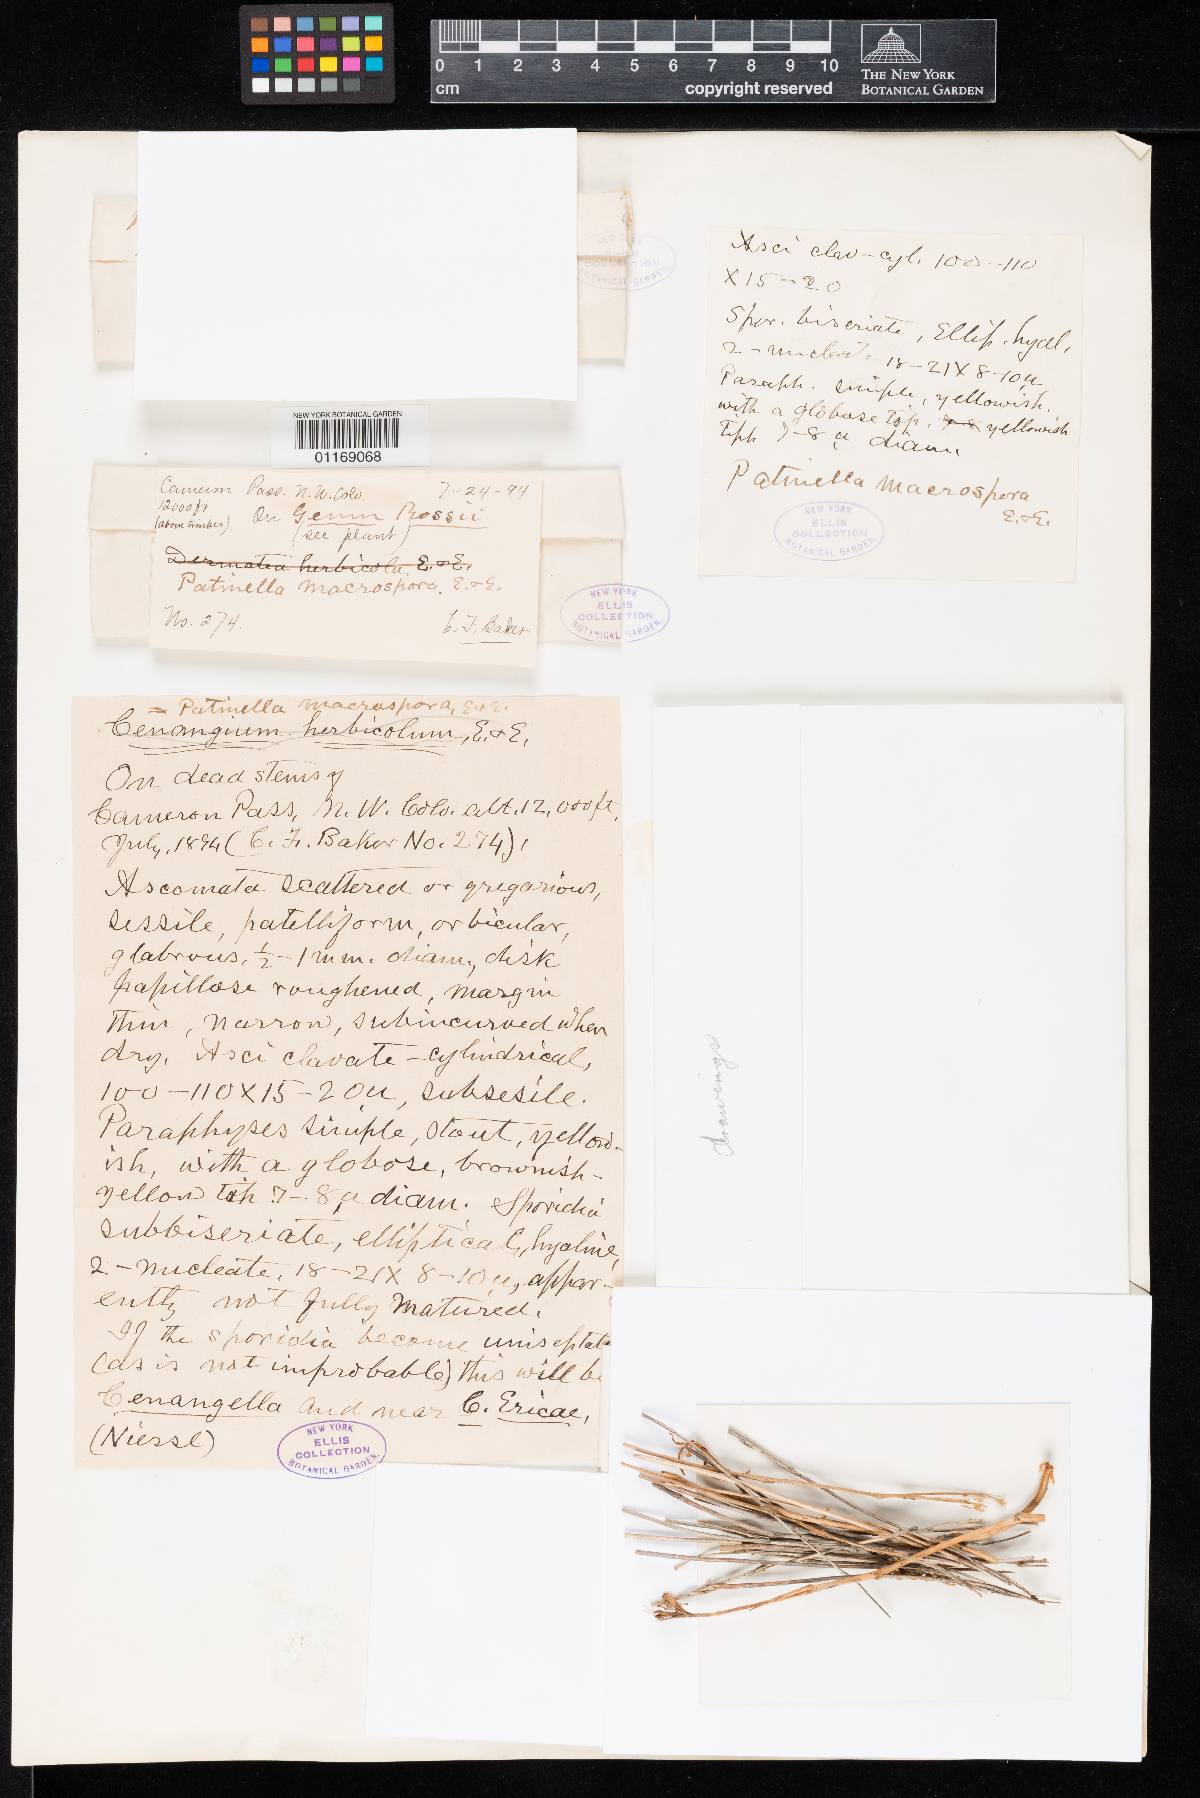 0 1 2 3 4 5 6 7 8 9 10
cm
copyright reserved
THE NEW YORK
BOTANICAL GARDEN
NEW YORK
COLLECTION
BOTANICAL GARDEN.
Asci clav-cyl. 100-110
X 15-20
Spor. biseriate, Ellip. hyal,
2-nucleate 18-21 X 8-10 µ
Paraph. simple, yellowish.
with a globose tip, yellowish
tiph 7-8 µ diam.
Patinella macrospora
E.&E.
NEW YORK
ELLIS
COLLECTION
BOTANICAL GARDEN.
NEW YORK BOTANICAL GARDEN
01169068
Camerm Pass. N.W. Colo. 7-24-94
12000 ft
(above timber)
On Geum Rossii
(see plant)
Dermatea herbicola E.&E.
Patinella macrospora. E.&E.
No. 274. C. F. Baker
NEW YORK
ELLIS
COLLECTION
BOTANICAL GARDEN.
= Patinella macrospora, E&E.
Cenangium herbicolum, E.&E.
On dead stems of
Cameron Pass, N. W. Colo. alt. 12,000 ft.
July, 1894 (C. F. Baker No. 274),
Ascomata scattered or gregarious,
sessile, patelliform, orbicular,
glabrous, ½-1 mm. diam., disk
papillose roughened, margin
thin, narrow, subincurved when
dry. Asci clavate-cylindrical,
100-110 X 15-20 µ, subsesile.
Paraphyses simple, stout, yellow-
ish, with a globose, brownish-
yellow tiph 7-8 µ diam. Sporidia
subbiseriate, elliptical, hyaline,
2-nucleate, 18-21 X 8-10 µ, appar-
ently not fully matured.
If the sporidia become uniseptate
(as is not improbable) this will be
Cenangella and near C. Ericae,
(Niessl)
NEW YORK
ELLIS
COLLECTION
BOTANICAL GARDEN.
drawings